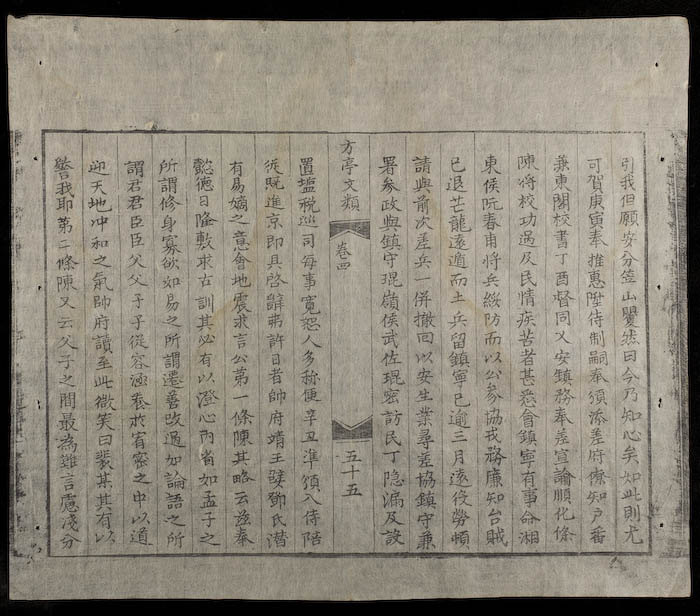 引我但願安分笠山矍然曰今乃知心矣如此則尤
可賀庚寅奉推惠陞待制嗣奉須添差府僚知户番
兼東閣校書丁酉督同乂安鎮務奉差宣諭順化條
陳將校功過及民情疾苦者甚悉會鎮寧有事命湘
東侯阮春甫將兵緩防而以公參協戎務廉知台賊
已退芒龍遠遁而土兵留鎮寧已逾三月遠役勞頓
請與前次差兵一併撤回以安生業尋差協鎮守兼
署參政與鎮守琨嶺侯武佐琨密訪民丁隐漏及設
方亭文類
卷四
五十五
置塩稅巡司每事寬恕人多称便辛丑準領入侍陪
從既進京即具啓辭弗許日者帥府靖王嬖鄧氏潜
有易嫡之意會地震求言公第一條陳其略云玆奉
懿德日隆敷求古訓其必有以澄心內省如孟子之
所謂修身寡欲如易之所謂遷善改過如論語之所
謂君君臣臣父父子子從容涵養於宥密之中以道
迎天地冲和之氣帥府讀至此微笑曰裴某其有以
警我耶第二條陳又云父子之間最為難言慮淺分